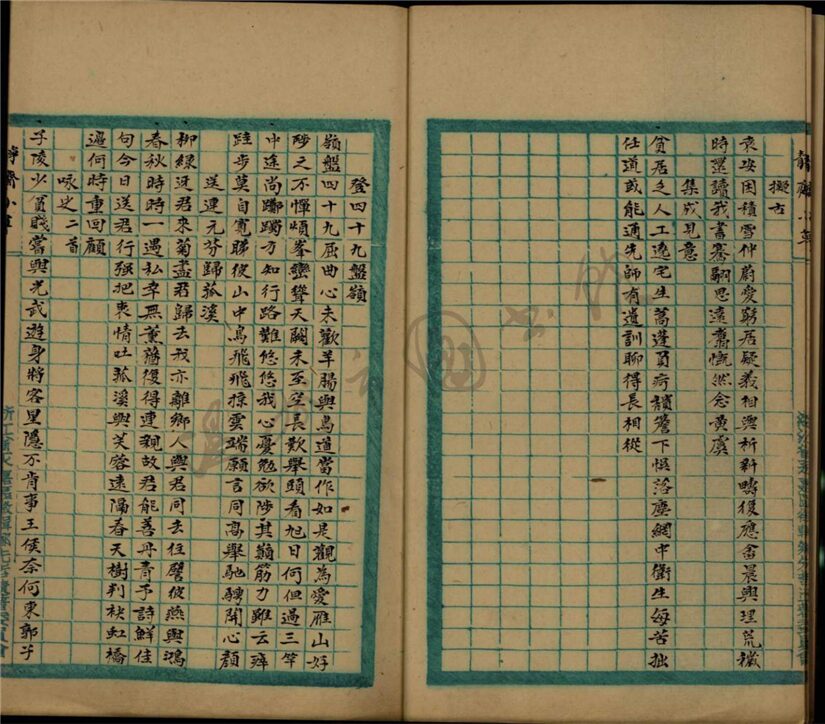 擬古
袁安困積雪仲蔚愛窮居疑義相與析新疇復應畬晨興理荒穢
時還讀我書騫嗣思遠翥慨然念黃虞
集成見意
貧居乏人工遶宅生蒿蓬負疴頹簷下悮落塵網中衛生每苦拙
任道或能通先師有遺訓聊得長相從
登四十九盤嶺
嶺盤四十九屈曲心未歡羊腸與鳥道當作如是觀為愛雁山好
陟之不憚煩峯巒聳天關未至空長歎舉頭看旭日何但過三竿
中途尚躑躅方知行路難悠悠我心憂勉欲陟其巔筋力雖云瘁
跬步莫自寬睇彼山中鳥飛飛掠雲端願言同高舉馳騁開心顏
送連元芬歸菰溪
柳綠迓君來菊盡君歸去我亦離鄉人與君同去住譬彼燕與鴻
春秋時時一遇私幸無薰蕕復得連親故君能善丹青予詩鮮佳
句今日送君行强把衷情吐菰溪與芙蓉遠隔春天樹判袂虹橋
邊何時重回顧
咏史二首
子陵少貧賤嘗與光武遊身將客星隱不肯事王侯奈何東郭子